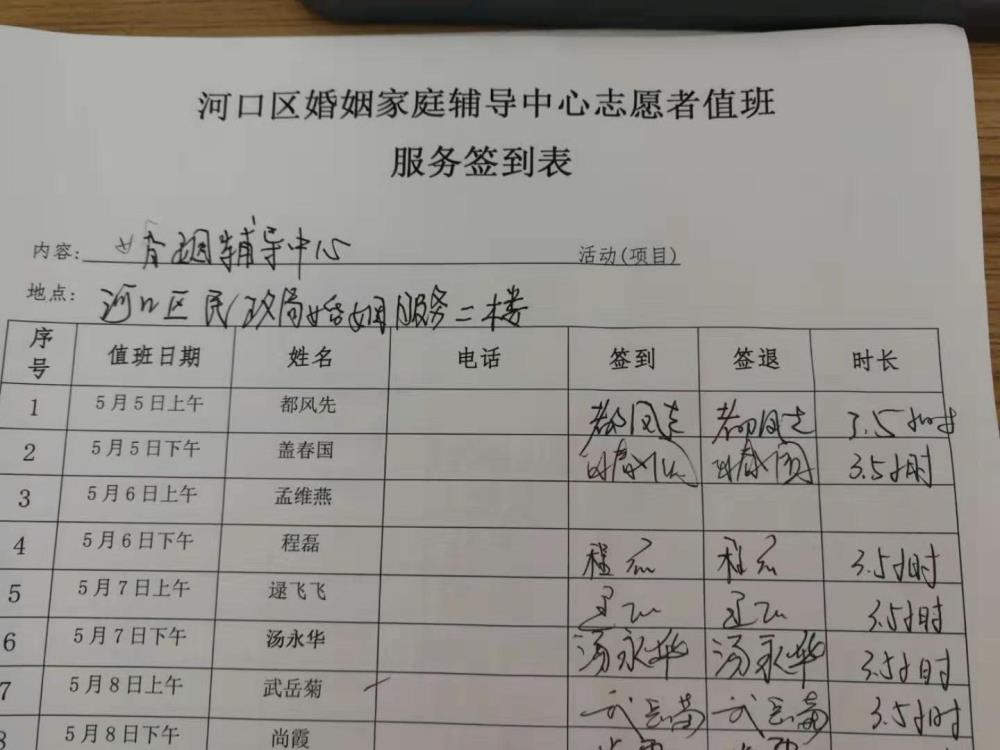 河口区婚姻家庭辅导中心志愿者值班
服务签到表
内容: 婚姻辅导中心 活动(项目)
地点: 河口区民政局婚姻服务二楼
序号 值班日期 姓名 电话 签到 签退 时长
1 5月5日上午 都风先 都风先 都风先 3.5小时
2 5月5日下午 盖春国 3.5小时
3 5月6日上午 孟维燕
4 5月6日下午 程磊 程磊 程磊 3.5小时
5 5月7日上午 逯飞飞 3.5小时
6 5月7日下午 汤永华 汤永华 汤永华 3.5小时
7 5月8日上午 武岳菊 武岳菊 武岳菊 3.5小时
8 5月8日下午 尚霞